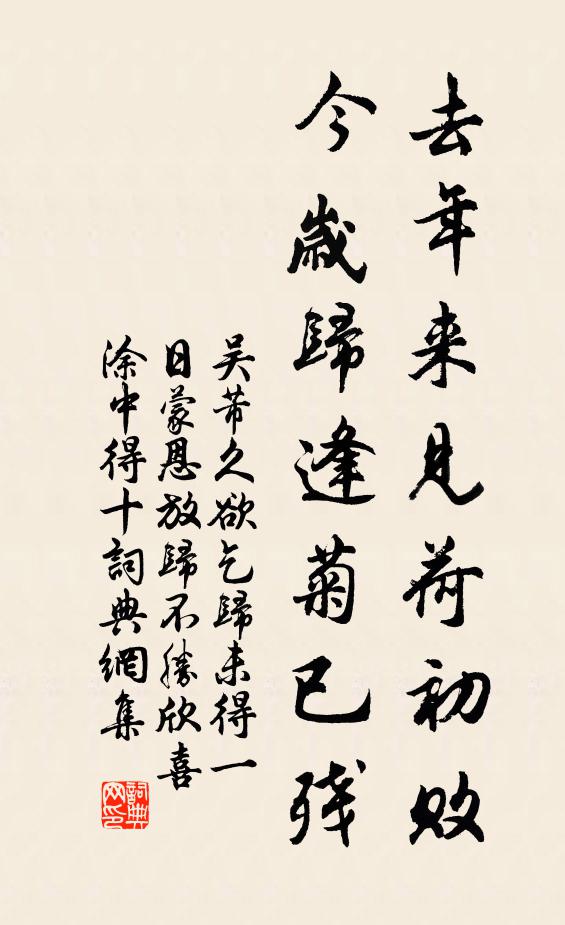 去年来見荷初敗
今歲歸逢菊已残
吴芾久欲乞歸未得一
日蒙恩放歸不勝欣喜
涂中得十詞典網集
詞典网印